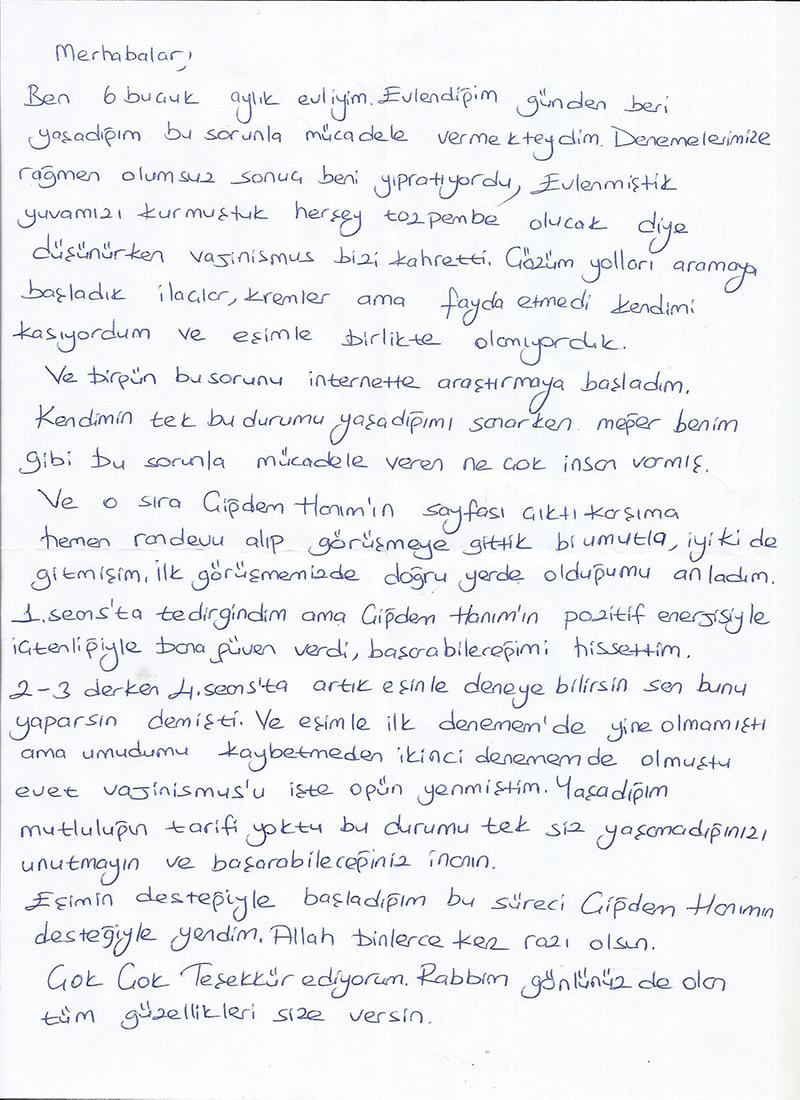 Merhabalar,
Ben 6 buçuk aylık evliyim. Evlendiğim günden beri
yaşadığım bu sorunla mücadele vermekteydim. Denemelerimize
rağmen olumsuz sonuç beni yıpratıyordu, Evlenmiştik
yuvamızı kurmuştuk herşey tozpembe olucak diye
düşünürken vajinismus bizi kahretti. Çözüm yolları aramaya
başladık ilaçlar, kremler ama fayda etmedi kendimi
kasıyordum ve eşimle birlikte olamıyorduk.
Ve birgün bu sorunu internette araştırmaya başladım.
Kendimin tek bu durumu yaşadığımı sanarken meğer benim
gibi bu sorunla mücadele veren ne çok insan varmış.
Ve o sıra Çiğdem Hanım'ın sayfası çıktı karşıma
hemen randevu alıp görüşmeye gittik bi umutla, iyi ki de
gitmişim. ilk görüşmemizde doğru yerde olduğumu anladım.
1. seans'ta tedirgindim ama Çiğdem Hanım'ın pozitif enerjisiyle
içtenliğiyle bana güven verdi, başarabileceğimi hissettim.
2-3 derken 4. seans'ta artık eşinle deneye bilirsin sen bunu
yaparsın demişti. Ve eşimle ilk denemem'de yine olmamıştı
ama umudumu kaybetmeden ikinci denememde olmuştu
evet vajinismus'u işte ogün yenmiştim. Yaşadığım
mutluluğun tarifi yoktu bu durumu tek siz yaşamadığınızı
unutmayın ve başarabileceğiniz inanın.
Eşimin desteğiyle başladığım bu süreci Çiğdem Hanımın
desteğiyle yendim. Allah binlerce kez razı olsun.
Çok Çok Teşekkür ediyorum. Rabbim gönlünüz de olan
tüm güzellikleri size versin.